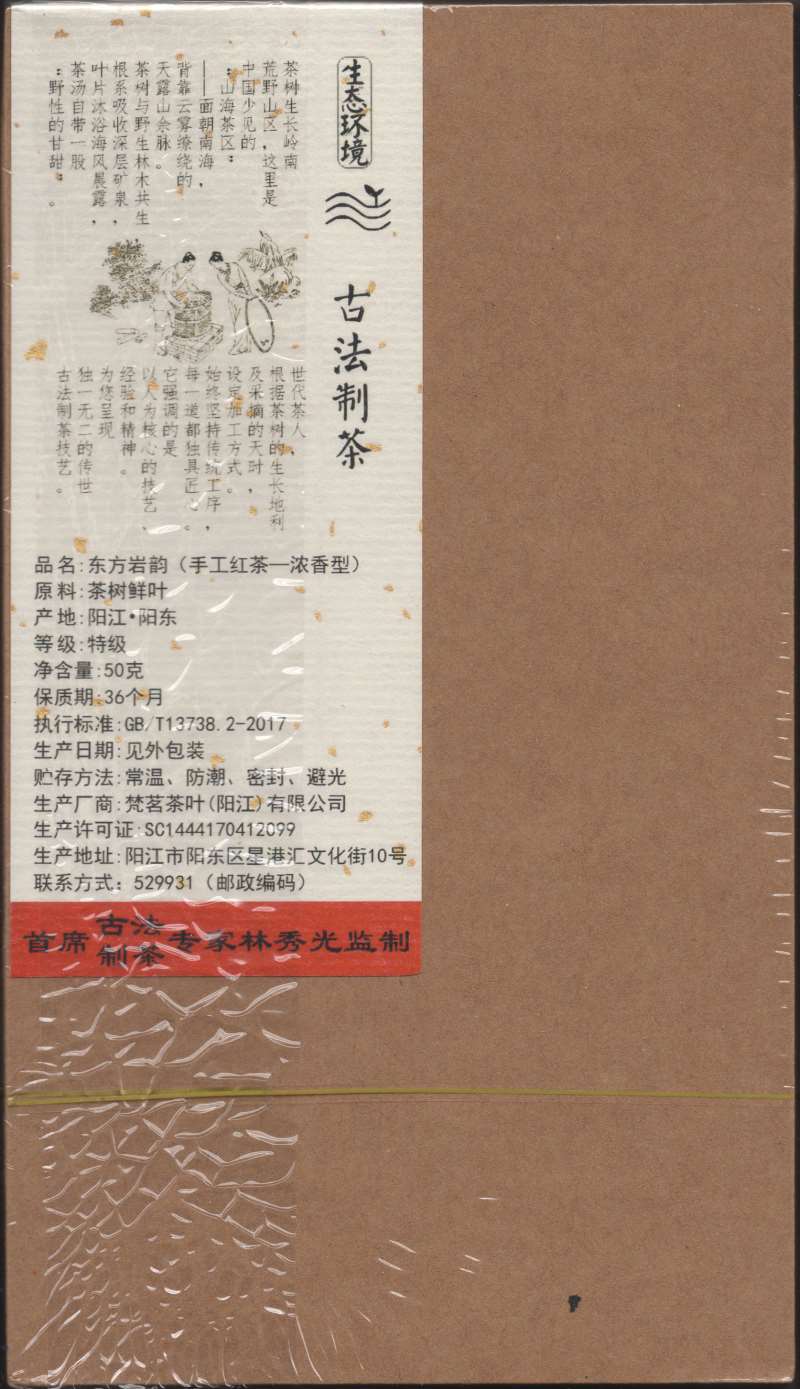 生态环境
茶树生长岭南
荒野山区，这里是
中国少见的
“山海茶区”
——面朝南海，
背靠云雾缭绕的
天露山余脉。
茶树与野生林木共生
根系吸收深层矿泉，
叶片沐浴海风晨露，
茶汤自带一股
“野性的甘甜”。
古法制茶
世代茶人，
根据茶树的生长地利
及采摘的天时，
设定加工方式。
始终坚持传统工序，
每一道都独具匠心。
它强调的是
以人为核心的技艺、
经验和精神。
为您呈现
独一无二的传世
古法制茶技艺。
品名:东方岩韵（手工红茶—浓香型）
原料:茶树鲜叶
产地:阳江•阳东
等级:特级
净含量:50克
保质期:36个月
执行标准:GB/T13738.2-2017
生产日期:见外包装
贮存方法:常温、防潮、密封、避光
生产厂商:梵茗茶叶(阳江)有限公司
生产许可证:SC1444170412099
生产地址:阳江市阳东区星港汇文化街10号
联系方式：529931（邮政编码）
首席古法制茶专家林秀光监制